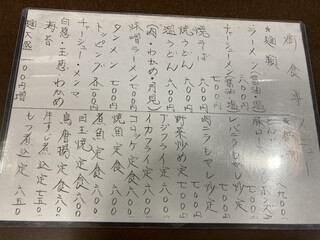 御食事
★麺類
ラーメン(醤油・塩)
六〇〇円
チャーシューメン(醤油・塩)
七〇〇円
焼そば
六〇〇円
焼うどん
六〇〇円
温うどん
(肉・わかめ・月見)
味噌ラーメン
七〇〇円
タンメン
七〇〇円
トッピング各
一〇〇円
チャーシュー、メンマ
白葱、玉葱、わかめ
海苔
麺大盛
一〇〇円増
レバニラもやし炒定
七〇〇
肉ニラもやし炒定
七〇〇
野菜炒め定
七〇〇
アジフライ定
六〇〇
イカフライ定
六〇〇
コロッケ定食
六〇〇
焼魚定食
六〇〇
煮魚定食
六〇〇
目玉焼定食
六〇〇
鳥唐揚定食
六〇〇
牛すじ煮込定
七五〇
もつ煮込定
六五〇